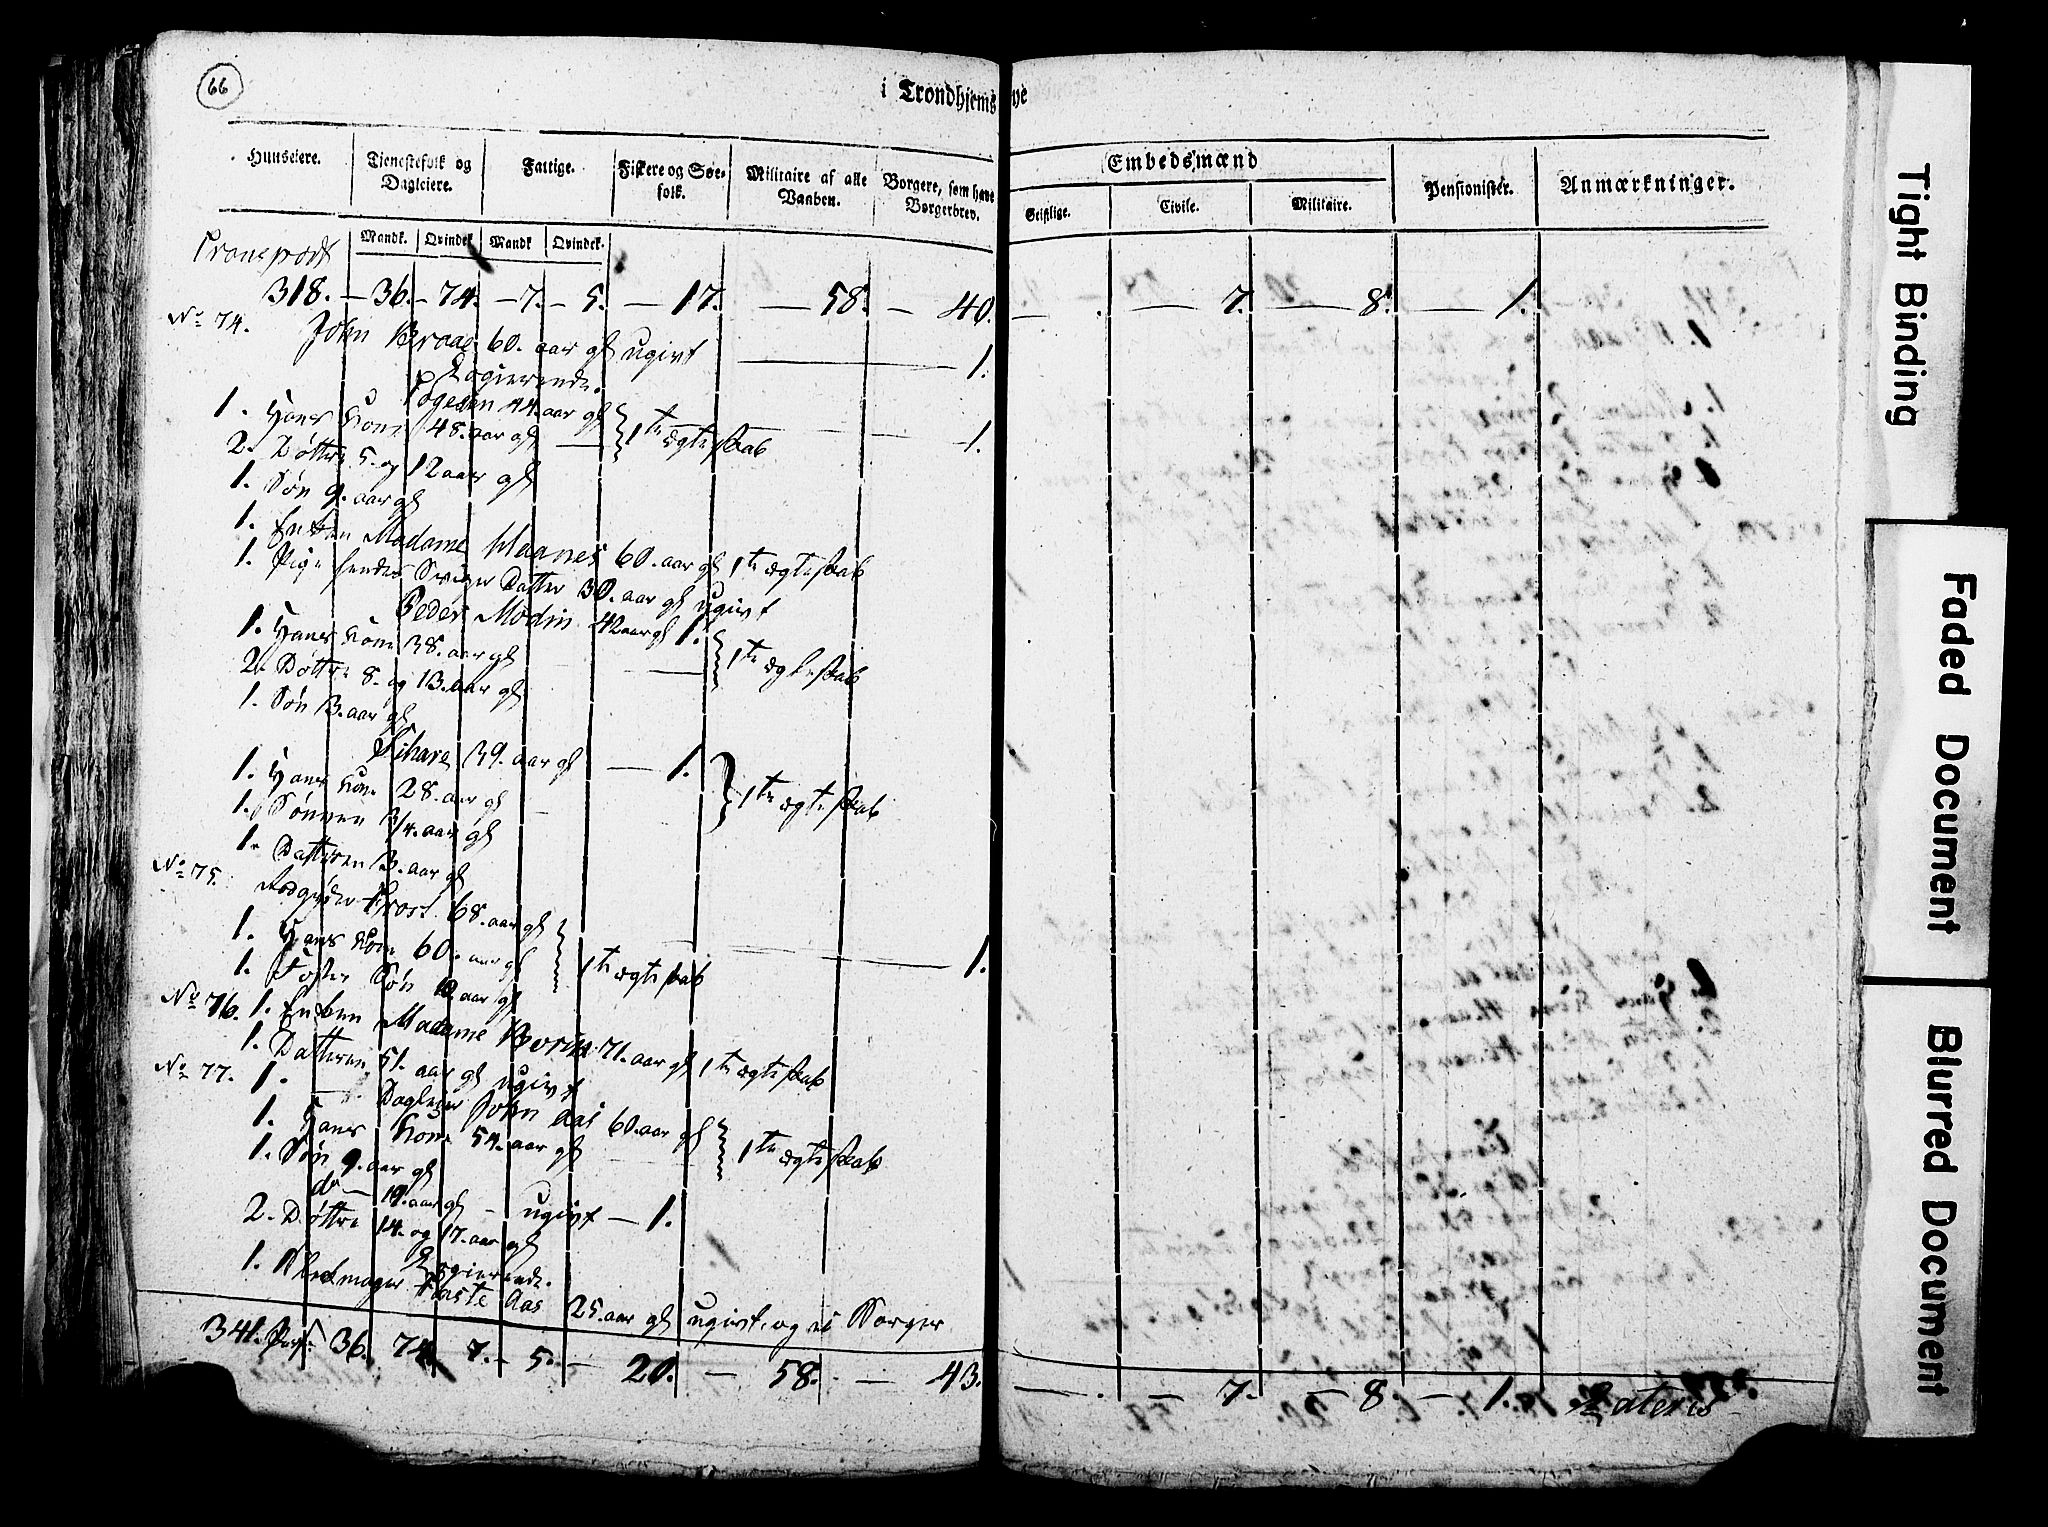 66
i Trondhjems Bye
Huuseiere. Tjenestefolk og Dagleiere. Fattige. Fiskere og Søefolk. Militaire af alle Vaaben. Borgere, som have Borgerbrev. Embedsmænd Pensionister. Anmærkninger.
Geistlige. Civile. Militaire.
Mandk. Qvindek. Mandk. Qvindek.
Transport
318. — 36. — 74. — 7. — 5. — 17. — 58. — 40. — . — 7. — 8. — 1.
No 74.
John Braae 60. aar gl ugivt — 1.
Logierende.
44. aar gl
1. Hans Kone 48. aar gl — 1te ægteskab — 1.
2. Døttre 5. og 12 aar gl
1. Søn 9. aar gl
1. Enken Madame Maanes 60. aar gl 1te ægteskab
1. Pige hendes Sviger Datter 30. aar gl ugivt
Peder Modin 42 aar gl 1.
1. Hans Kone 38. aar gl — 1te ægteskab
2. Døttre 8. og 13. aar gl
1. Søn 3. aar gl
39. aar gl — 1.
1. Hans Kone 28. aar gl 1te ægteskab
1. Sønnen 3/4. aar gl
1. Datteren 3. aar gl
No 75.
Trost 68. aar gl
1. Hans Kone 60. aar gl 1te ægteskab — 1.
1. Foster Søn 10 aar gl
No 76. 1. Enken Madame 71. aar gl 1te ægteskab
1. Datteren 51. aar gl ugivt
No 77. 1. Dagleier John Aas 60. aar gl
1. Hans Kone 54. aar gl 1te ægteskab
1. Søn 9. aar gl
do — 19. aar gl — ugivt — 1.
2. Døttre 14. og 17. aar gl
Logierende.
1. Skomager Aas 25. aar gl ugivt, og ei Borger
341. Pers: 36. 74. 7. — 5. — 20. — 58. — 43. — . — 7. — 8. — 1. Lateris
Tight Binding
Faded Document
Blurred Document